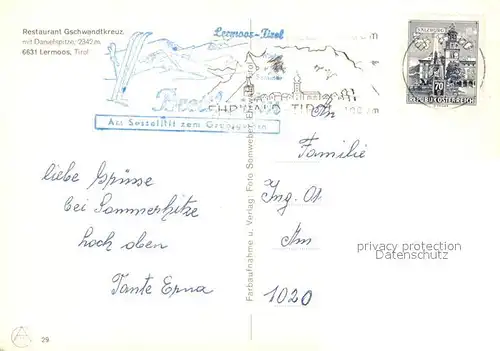 Restaurant Gschwandtkreuz,
mit Danielspitze, 2342 m,
6631 Lermoos, Tirol
Lermoos-Tirol
SALZBURG
70
REPUBLIK ÖSTERREICH
EHRWALD TIROL
Am Sessellift zum Grubigstein
An
Familie
Ing. Ot
Am
1020
liebe Grüsse
bei Sommerhitze
hoch oben
Tante Erna
Farbaufnahme u. Verlag: Foto Somweber, Ehrwald, Tirol
privacy protection
Datenschutz
29